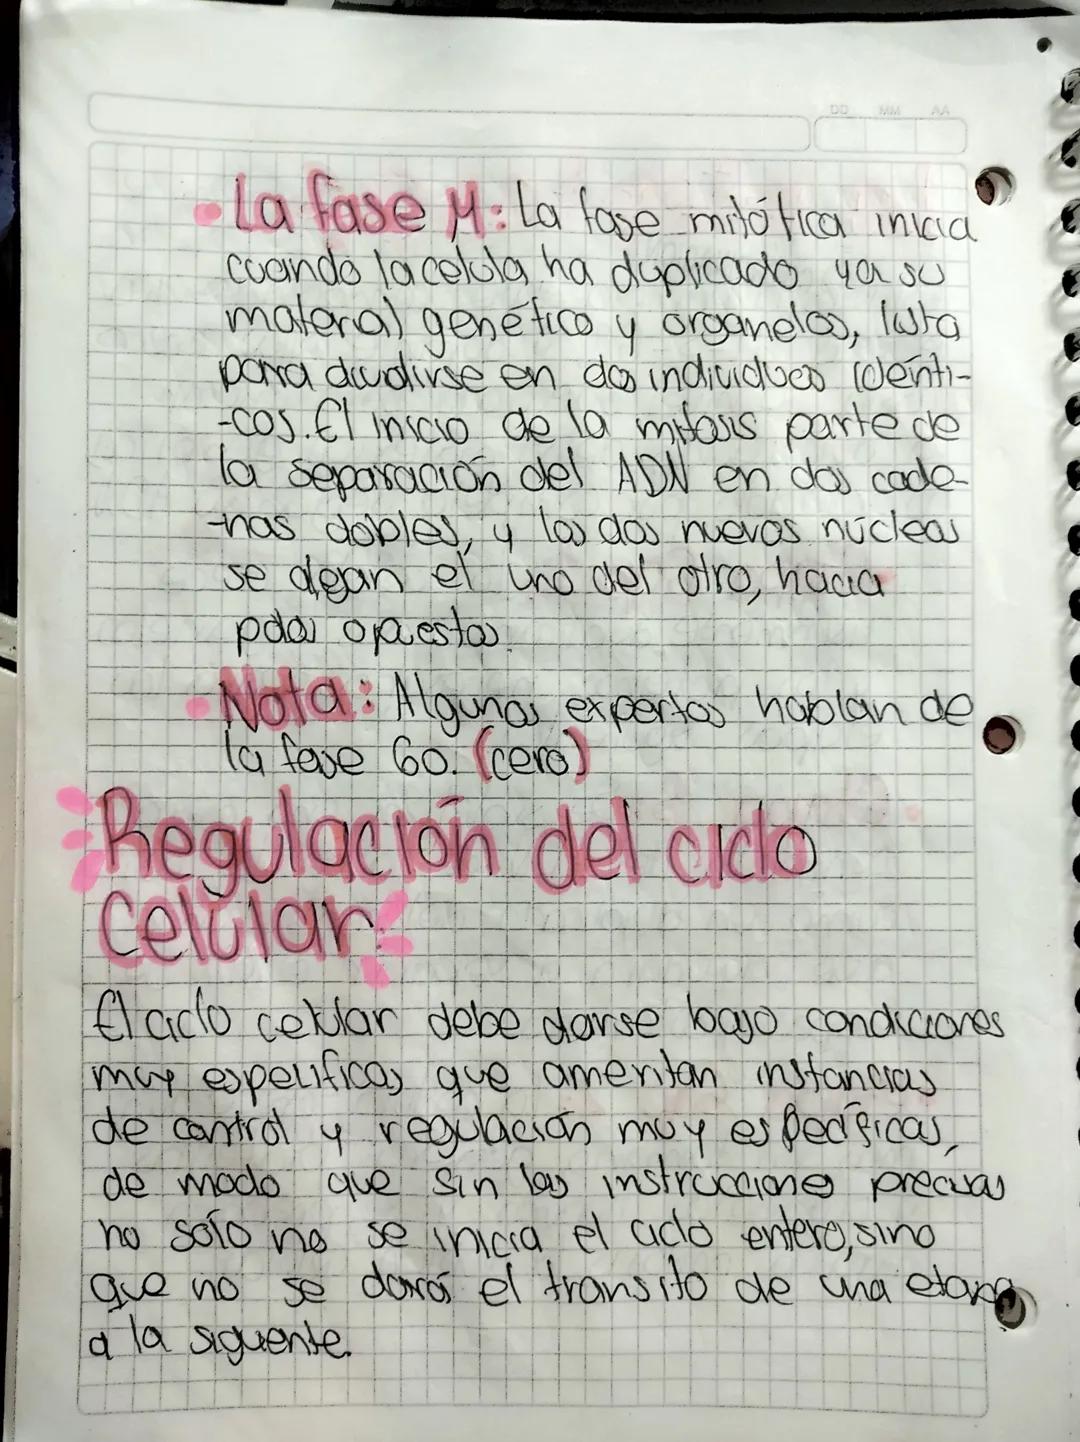 DD MM AA
• La fase M: La fase mitótica inicia
cuando la celula ha duplicado ya su
material genético y organelos, lista
para dividirse en dos individuos identi-
-cos. El inicio de la mitosis parte de
la separación del ADN en dos cade-
-nas dobles, y los dos nuevos núcleos
se alejan el uno del otro, hacia
polos opuestos.
• Nota: Algunos expertos hablan de
la fase G0. (cero)
Regulación del ciclo
Celular
El ciclo celular debe darse bajo condiciones
muy especificas que ameritan instancias
de control y regulación muy específicas,
de modo que sin las instrucciones precisas
no sólo no se inicia el ciclo entero, sino
que no se dará el transito de una etapa
a la siguente.